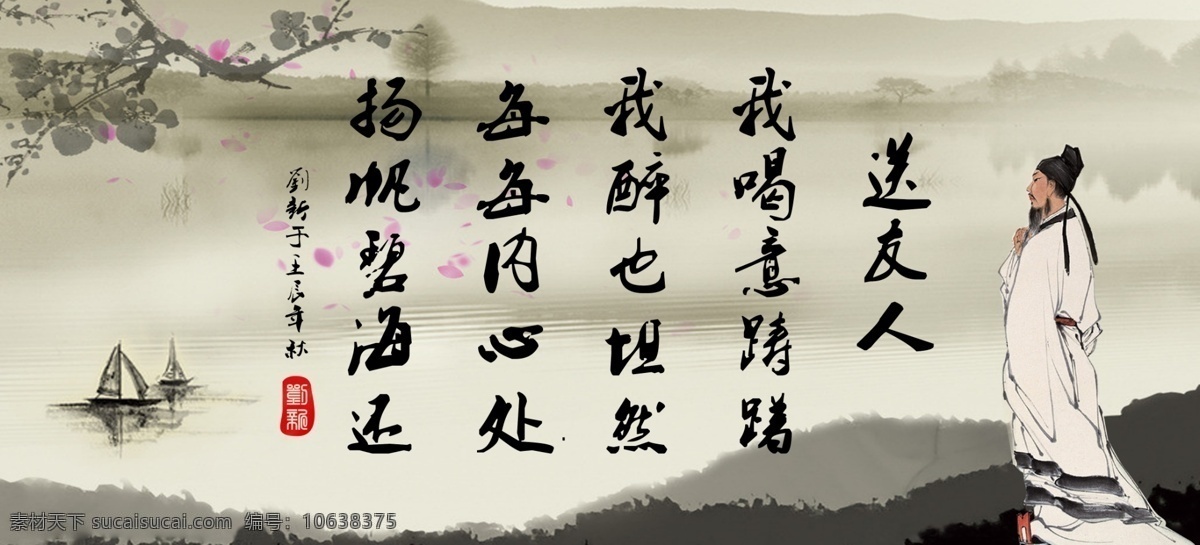 送友人
我喝意踌躇
我醉也坦然
每每内心处
扬帆碧海还
劉新于壬辰年秋
劉新
素材天下 sucaisucai.com 编号：10638375